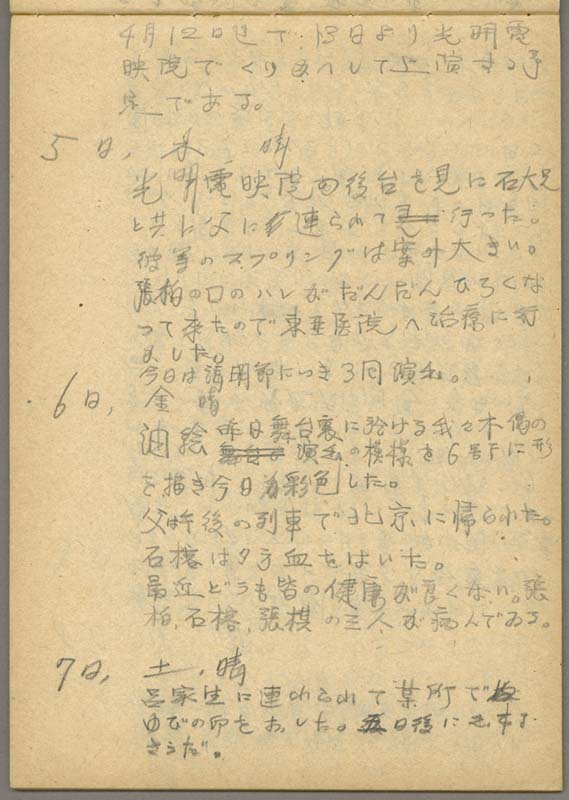 4月12日迄で、13日より光明電
映院でくりかへして上演する予
定である。
5日、木 晴
光明電映院の後台を見に石大兄
と共に父に連られて行った。
彼等のスプリングは案外大きい。
張柏の口のハレがだんだんひろくな
って来たので東亜医院へ治療に行
ました。
今日は清明節につき3回演奏。
6日、金 晴
油絵 昨日舞台裏に於ける我々木偶の
演奏の模様を6号下に形
を描き今日彩色した。
父は午後の列車で北京に帰られた。
石榕は夕方血をはいた。
最近どうも皆の健康が良くない。張
柏、石榕、張棋の三人が病んでゐる。
7日、土、晴
呂家生に連れられて某所で
ゆびの印をおした。日後に
さうだ。